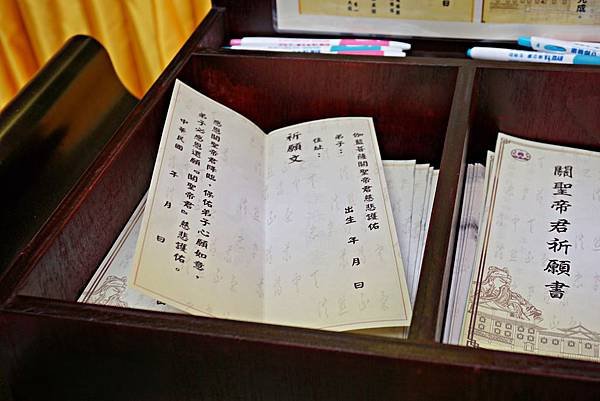 伽藍菩薩關聖帝君慈悲護佑
弟子：
出生 年 月 日
住址：
祈願文
感恩關聖帝君降臨，保佑弟子心願如意，
弟子必感恩還願『關聖帝君』慈悲護佑。
中華民國 年 月 日
關聖帝君祈願書